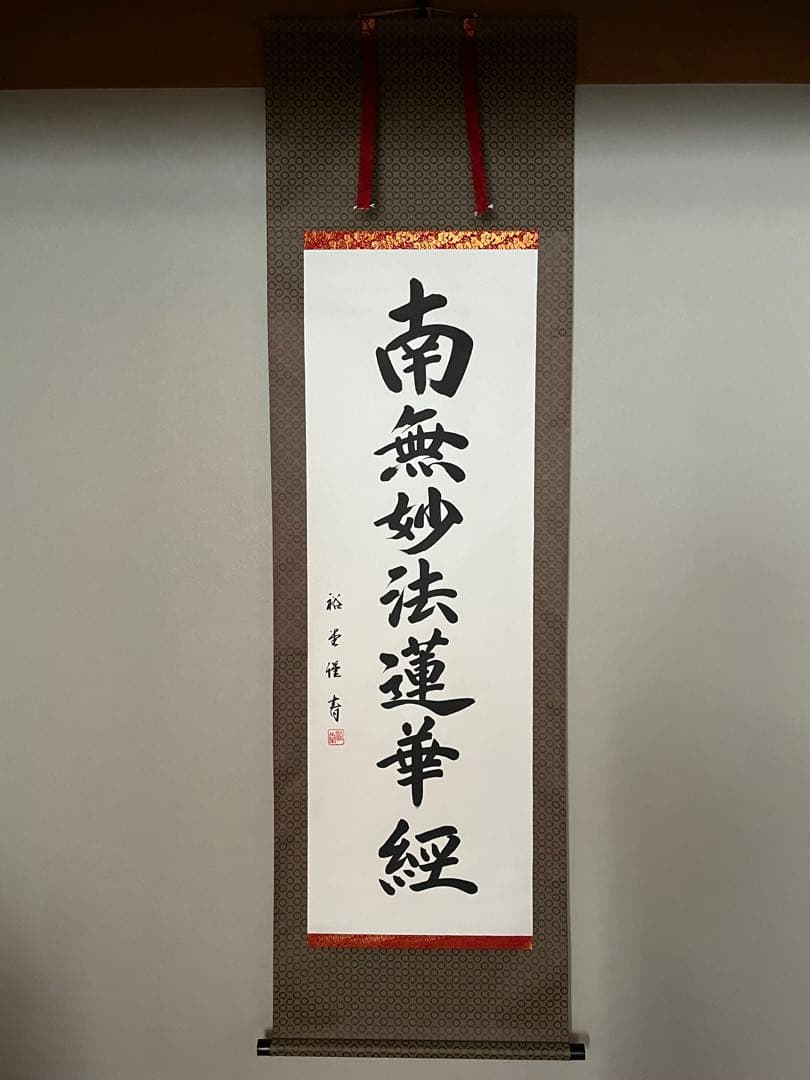 南無妙法蓮華經
裕堂謹書